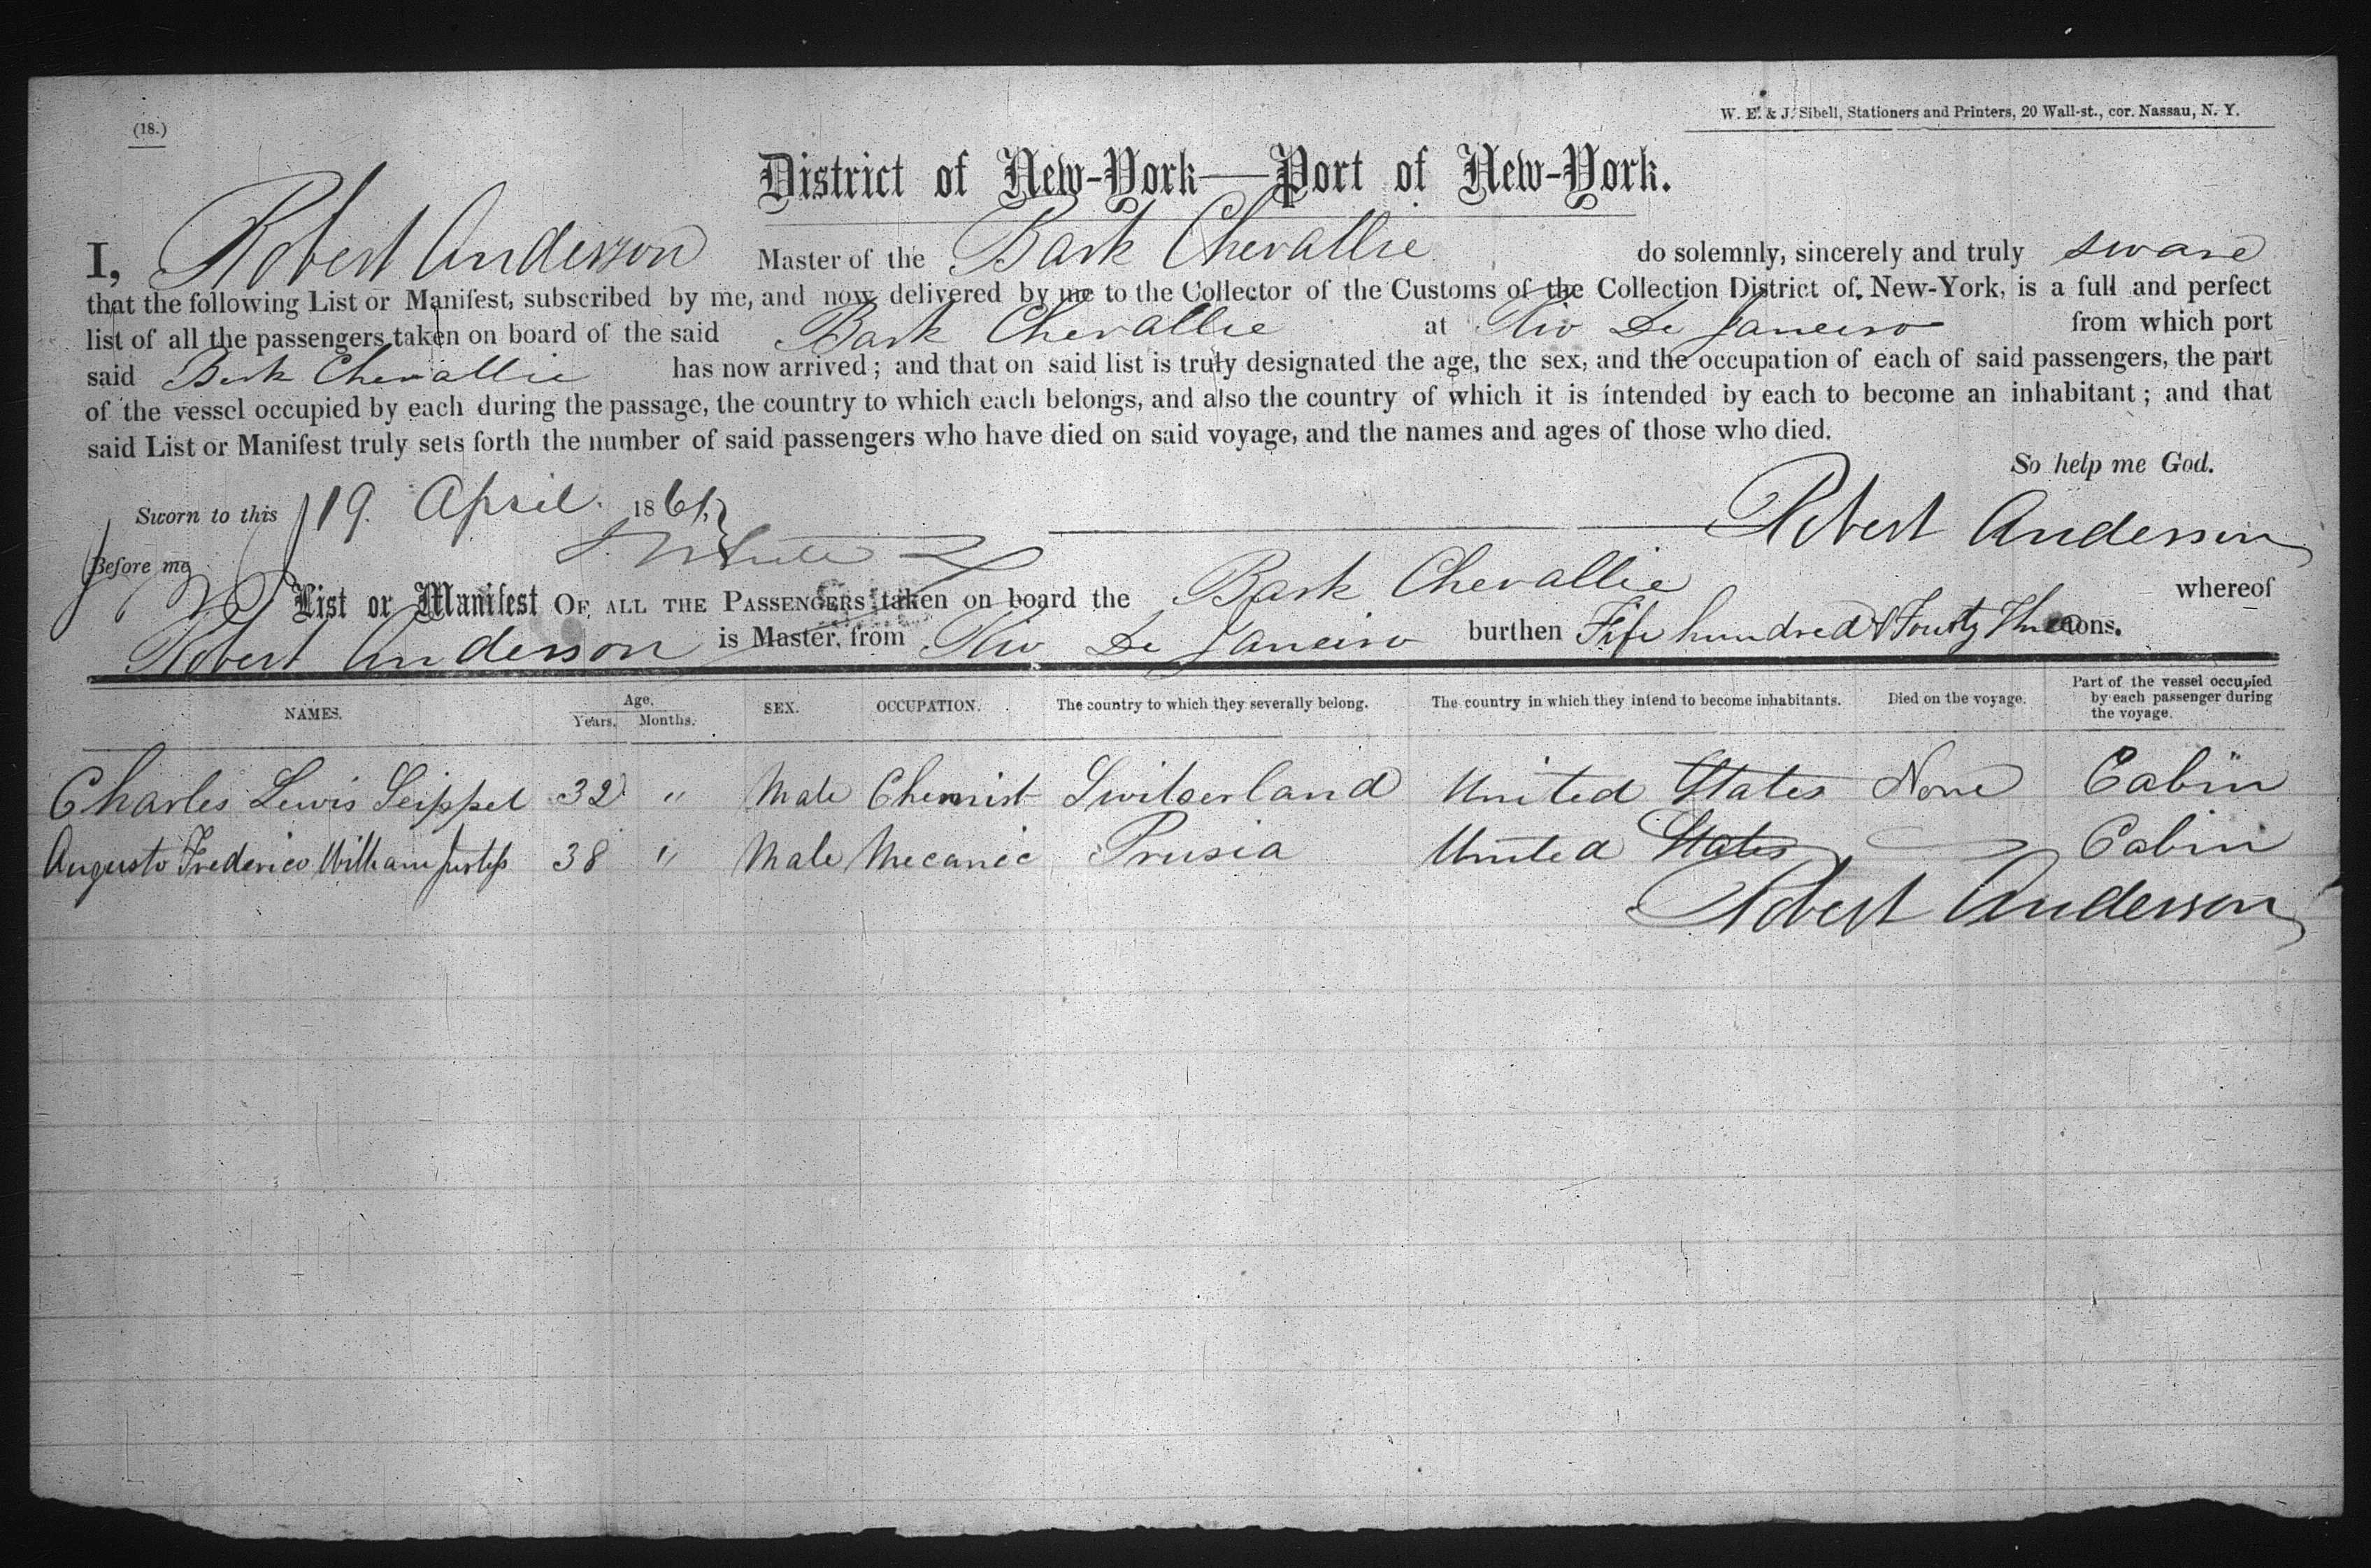 (18.)
W. E. & J. Sibell, Stationers and Printers, 20 Wall-st., cor. Nassau, N. Y.
District of New-York—Port of New-York.
I, Robert Anderson Master of the Bark Chevallie do solemnly, sincerely and truly sware
that the following List or Manifest, subscribed by me, and now delivered by me to the Collector of the Customs of the Collection District of New-York, is a full and perfect
list of all the passengers taken on board of the said Bark Chevallie at Rio De Janeiro from which port
said Bark Chevallie has now arrived; and that on said list is truly designated the age, the sex, and the occupation of each of said passengers, the part
of the vessel occupied by each during the passage, the country to which each belongs, and also the country of which it is intended by each to become an inhabitant; and that
said List or Manifest truly sets forth the number of said passengers who have died on said voyage, and the names and ages of those who died.
So help me God.
Sworn to this 19. April. 1861,
Robert Anderson
Before me
List or Manifest OF ALL THE PASSENGERS taken on board the Bark Chevallie whereof
Robert Anderson is Master, from Rio De Janeiro burthen Fife hundred & Fourty Three tons.
NAMES. Age. Years. Months. SEX. OCCUPATION. The country to which they severally belong. The country in which they intend to become inhabitants. Died on the voyage. Part of the vessel occupied by each passenger during the voyage.
Charles Lewis Seippel 32 " Male Chemist Switserland United States None Cabin
Augusto Frederico William 38 " Male Mecanic Prusia United States Cabin
Robert Anderson